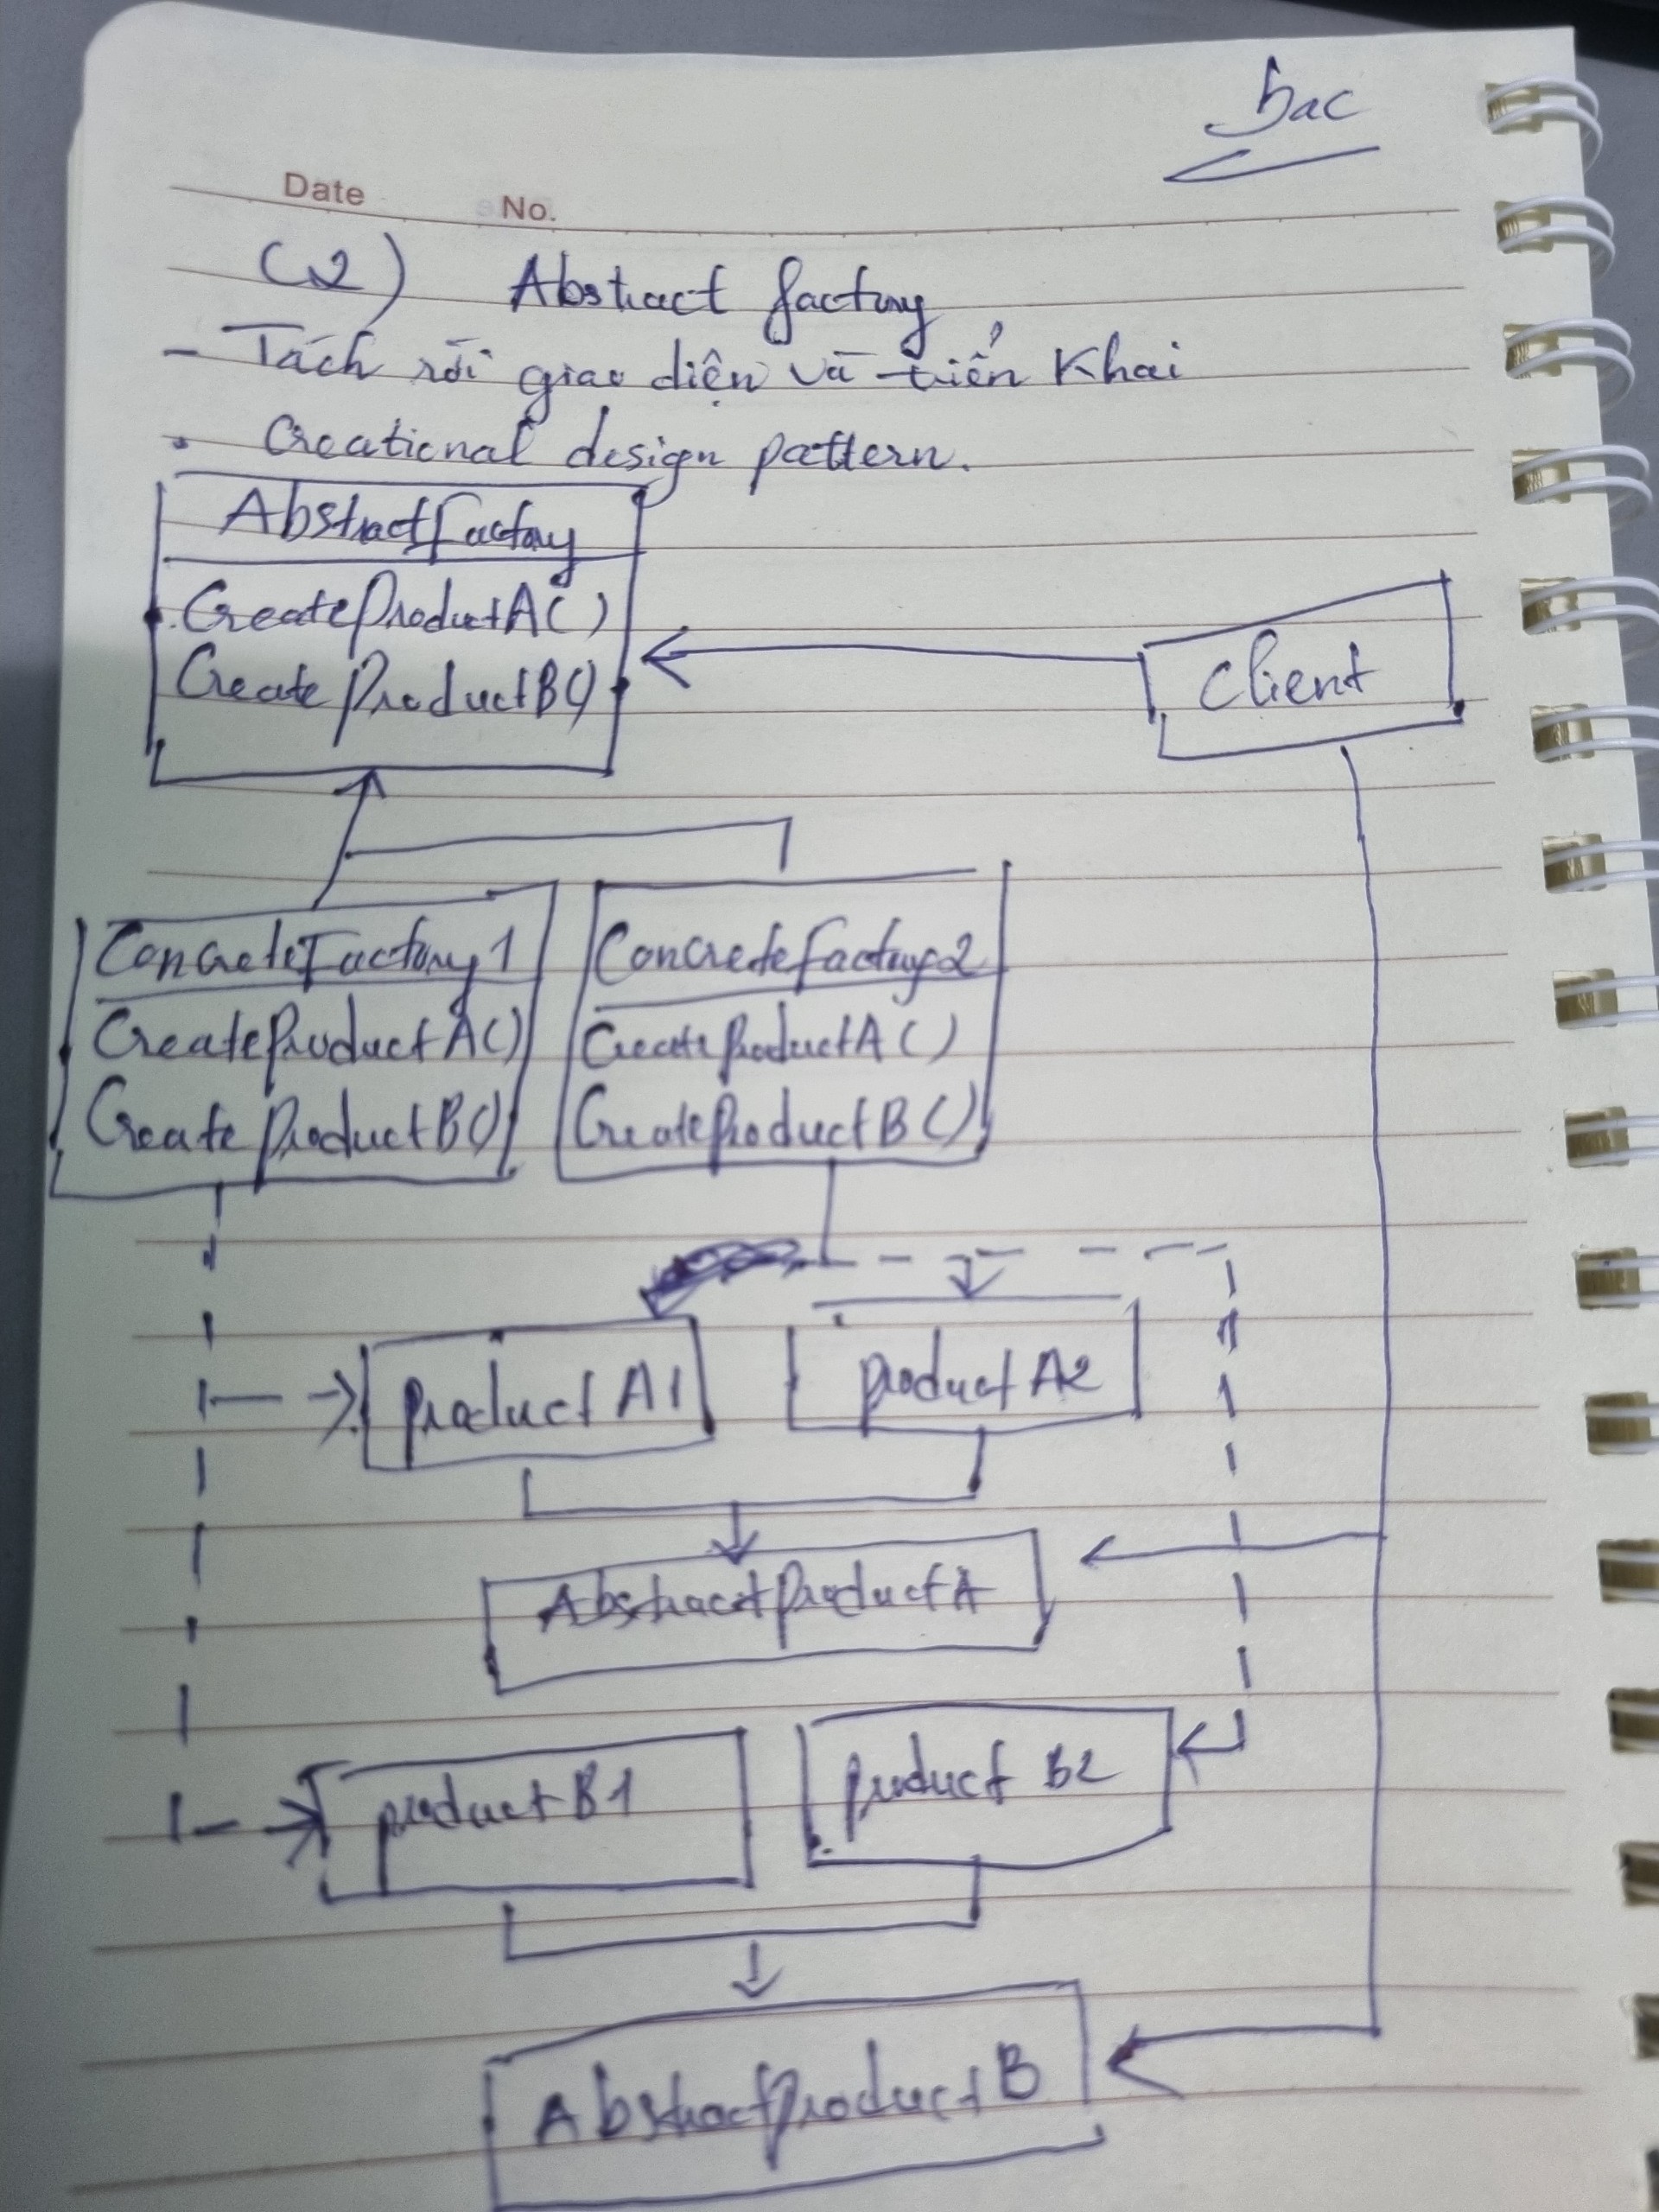 Bac
Date No.
(2) Abstract factory
- Tách rời giao diện và triển Khai
. Creational design pattern.
AbstractFactory
CreateProductA()
CreateProductB()
Client
ConcreteFactory1 ConcreteFactory2
CreateProductA() CreateProductA()
CreateProductB() CreateProductB()
productA1 productA2
AbstractproductA
productB1 product B2
AbstractproductB